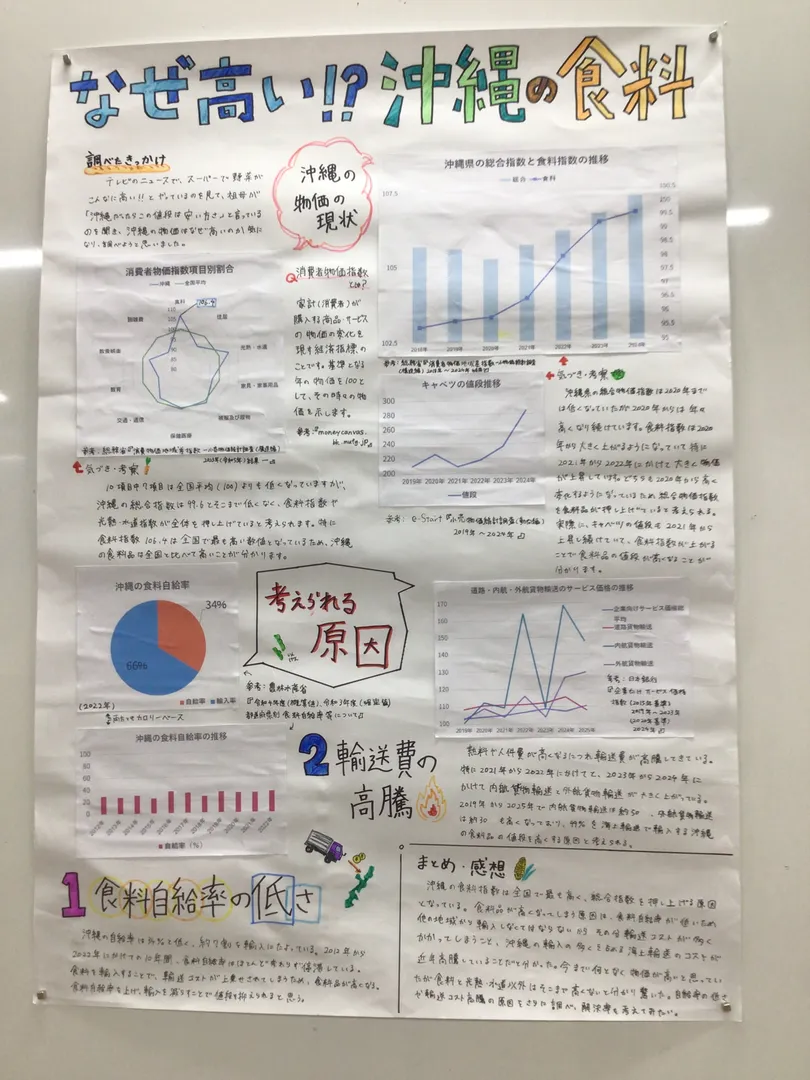 なぜ高い!? 沖縄の食料
調べたきっかけ
テレビのニュースで、スーパーで野菜が
こんなに高い!!とやっているのを見て、祖母が
「沖縄だったらこの値段は安い方さ」と言っている
のを聞き、沖縄の物価はなぜ高いのか気に
なり、調べようと思いました。
沖縄の
物価の
現状
消費者物価指数項目別割合
沖縄 全国平均
食料
106.4
住居
光熱・水道
家具・家事用品
被服及び履物
保健医療
交通・通信
教育
教養娯楽
諸雑費
115
110
105
100
95
90
Q 消費者物価指数
とは?
家計(消費者)が
購入する商品・サービス
の物価の変化を
現す経済指標の
ことです。基準となる
年の物価を100と
して、その時々の物
価を示します。
沖縄県の総合指数と食料指数の推移
総合 食料
107.5
105
102.5
100.5
100
99.5
98.5
97.5
96.5
95.5
95
2018年 2019年 2020年 2021年 2022年 2023年
キャベツの値段推移
300
280
260
240
220
200
2019年 2020年 2021年 2022年 2023年 2024年
値段
参考: e-Stat『小売物価統計調査(動向編)
2019年〜2024年』
気づき・考察
10項目中7項目は全国平均(100)よりも低くなっていますが、
沖縄の総合指数は99.6とそこまで低くなく、食料指数や
光熱・水道指数が全体を押し上げていると考えられます。特に
食料指数106.4は全国で最も高い数値となっているため、沖縄
の食料品は全国と比べて高いことが分かります。
気づき・考察
沖縄県の総合物価指数は2020年まで
は低くなっていたが2020年からは年々
高くなり続けています。食料指数は2020
年から大きく上がるようになっていて特に
2021年から2022年にかけて大きく物価
が上昇している。どちらも2020年から高く
変化するようになっているため総合物価指数
を食料品が押し上げていると考えられる。
実際に、キャベツの値段も2021年から
上昇し続けていて、食料指数が上がる
ことで食料品の値段が高くなることが
分かります。
沖縄の食料自給率
34%
66%
自給率 輸入率
(2022年)
カロリーベース
考えられる
原因
参考: 農林水産省
『令和4年度(概算値)、令和3年度(確定値)
都道府県別食料自給率等について』
沖縄の食料自給率の推移
100
80
60
40
20
0
食料自給率(%)
道路・内航・外航貨物輸送のサービス価格の推移
170
160
150
140
130
120
110
100
2018年 2019年 2020年 2021年 2022年 2023年 2024年 2025年
企業向けサービス価格総
平均
道路貨物輸送
内航貨物輸送
外航貨物輸送
参考: 日本銀行
『企業向けサービス価格
指数(2015年基準)
2019年〜2023年
(2020年基準)
2024年』
2 輸送費の
高騰
燃料や人件費が高くなるにつれ輸送費が高騰してきている。
特に2021年から2022年にかけてと、2023年から2024年に
かけて内航貨物輸送と外航貨物輸送が大きく上がっている。
2019年から2025年で内航貨物輸送は約50、外航貨物輸送
は約30も高くなっており、99%を海上輸送で輸入する沖縄
の食料品の値段を高くする原因と考えられる。
1 食料自給率の低さ
沖縄の自給率は34%と低く、約7割を輸入にたよっている。2012年から
2022年にかけての10年間、食料自給率はほとんど変わらず停滞している。
食料を輸入することで、輸送コストが上乗せされてしまうため、食料品が高くなる。
食料自給率を上げ、輸入を減らすことで値段を抑えられると思う。
まとめ・感想
沖縄の食料指数は全国で最も高く、総合指数を押し上げる原因
となっている。食料品が高くなってしまう原因は、食料自給率が低いため
他の地域から輸入しなくてはならないから その分輸送コストが多く
かかってしまうこと、沖縄の輸入の多くを占める海上輸送のコストが
近年高騰していることだと分かった。今まで何となく物価が高いと思ってい
たが食料と光熱・水道以外はそこまで高くないと分かり驚いた。自給率の低さ
や輸送コスト高騰の原因をさらに調べ、解決策も考えてみたい。